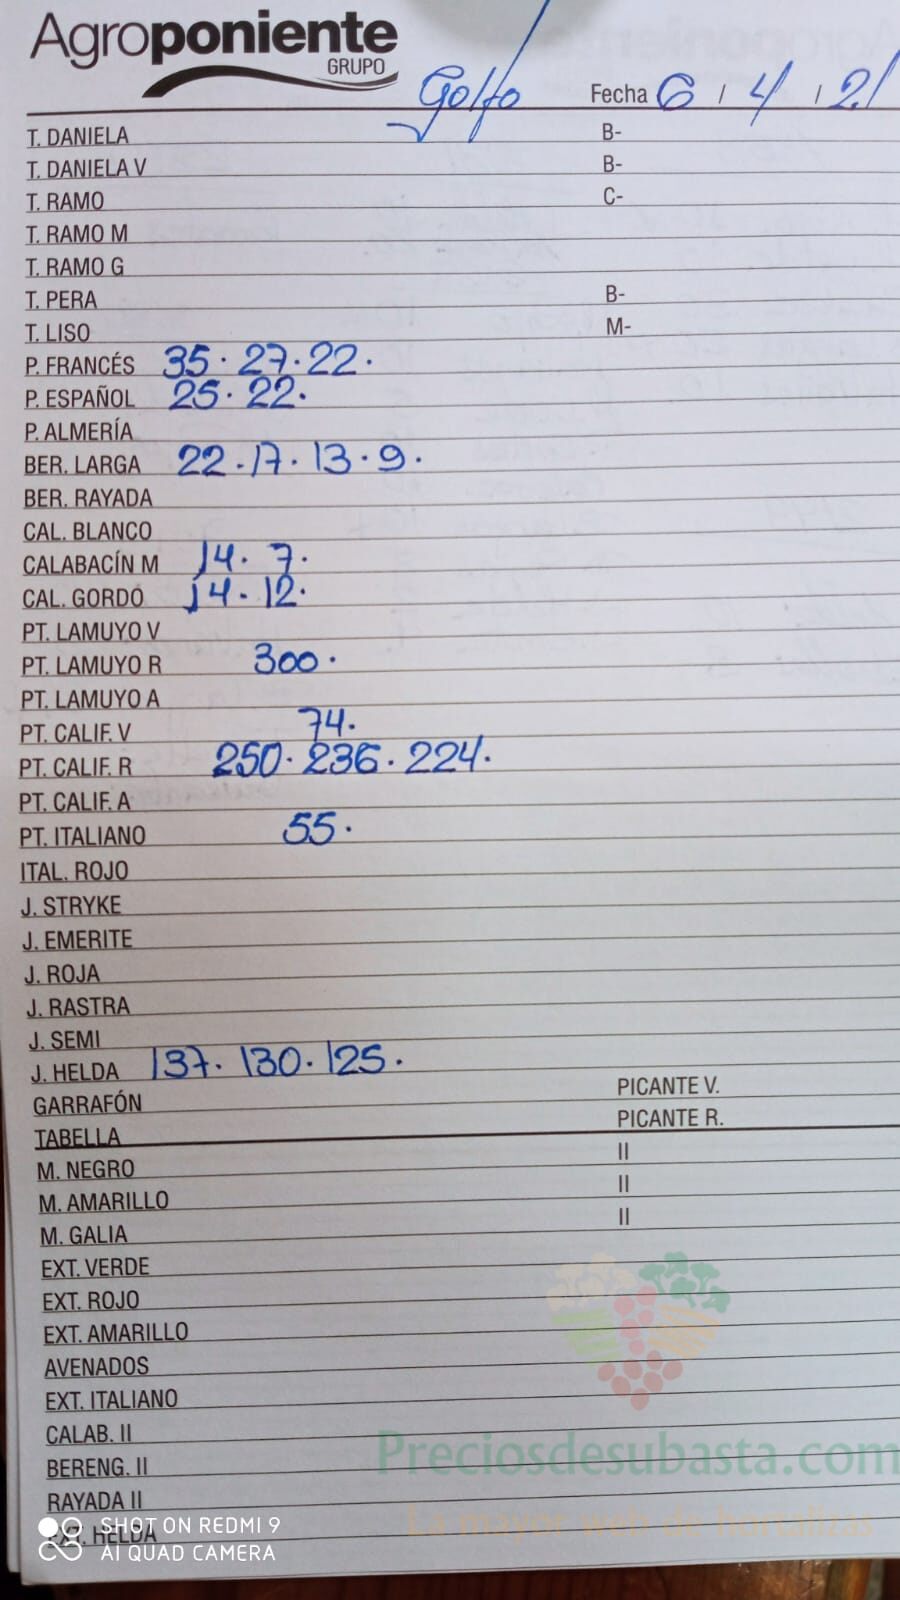 Agroponiente
GRUPO
Golfo Fecha 6 / 4 / 21
T. DANELA B-
T. DANIELA V B-
T. RAMO C-
T. RAMO M
T. RAMO G
T. PERA B-
T. LISO M-
P. FRANCÉS 35. 27. 22.
P. ESPAÑOL 25. 22.
P. ALMERÍA
BER. LARGA 22. 17. 13. 9.
BER. RAYADA
CAL. BLANCO
CALABACÍN M 14. 7.
CAL. GORDO 14. 12.
PT. LAMUYO V
PT. LAMUYO R 300.
PT. LAMUYO A
PT. CALIF. V 74.
PT. CALIF. R 250. 236. 224.
PT. CALIF. A
PT. ITALIANO 55.
ITAL. ROJO
J. STRYKE
J. EMERITE
J. ROJA
J. RASTRA
J. SEMI
J. HELDA 137. 130. 125.
GARRAFÓN PICANTE V.
TABELLA PICANTE R.
M. NEGRO II
M. AMARILLO II
M. GALIA II
EXT. VERDE
EXT. ROJO
EXT. AMARILLO
AVENADOS
EXT. ITALIANO
CALAB. II
BERENG. II
RAYADA II
EXT. HELDA
Preciosdesubasta.com
La mayor web de hortalizas
SHOT ON REDMI 9
AI QUAD CAMERA